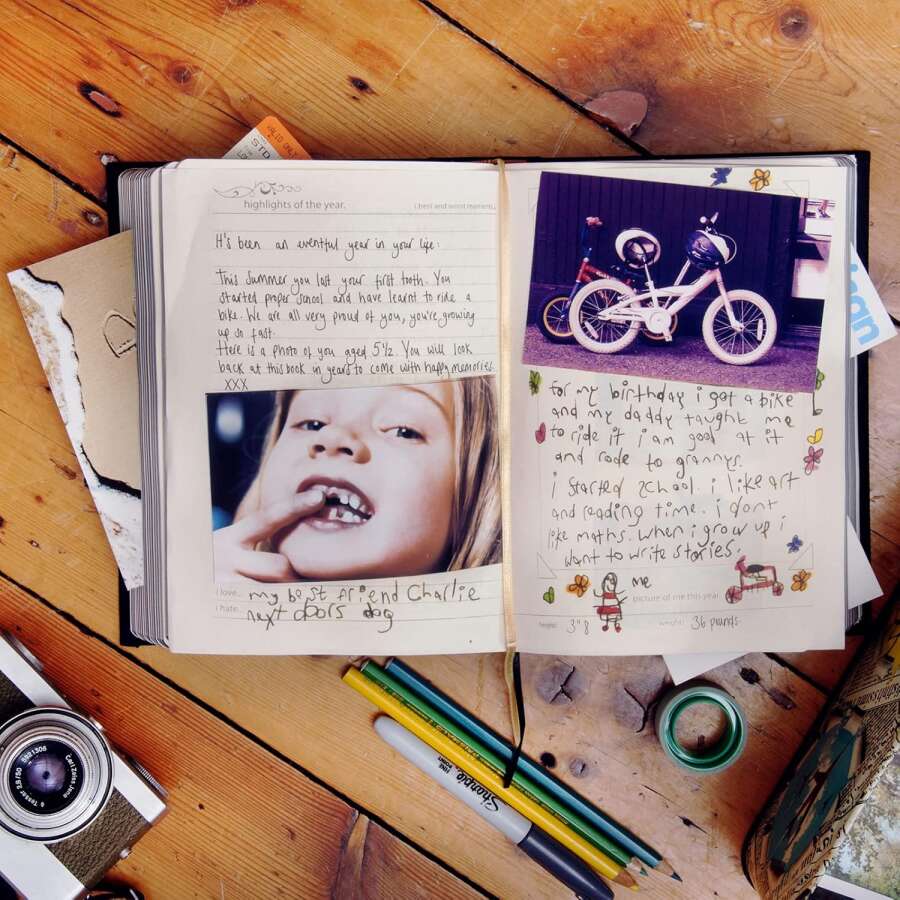 VALID ONLY
STD
highlights of the year.
(best and worst moments)
It's been an eventful year in your life:
This Summer you lost your first tooth. You
started proper school and have learnt to ride a
bike. We are all very proud of you, you're growing
up so fast.
Here is a photo of you aged 5½. You will look
back at this book in years to come with happy memories.
XXX
i love... my best friend Charlie
i hate... next doors dog
for my birthday i got a bike
and my daddy taught me
to ride it i am good at it
and rode to grannys.
i started school. i like art
and reading time. i dont
like maths. when i grow up i
want to write stories.
me
picture of me this year...
height: 3"8
weight: 36 pounds
Carl Zeiss Jena
Tessar 2.8/50
Sharpie
FINE POINT